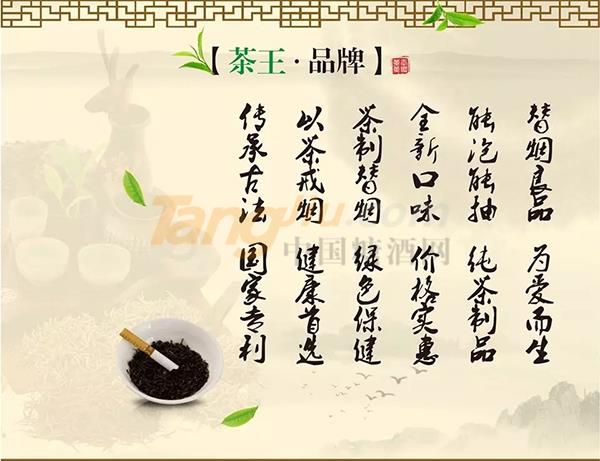 【茶王·品牌】
替烟良品 为爱而生
能泡能抽 纯茶制品
全新口味 价格实惠
茶制替烟 绿色保健
以茶戒烟 健康首选
传承古法 国家专利
Tangjiu.com
中国糖酒网